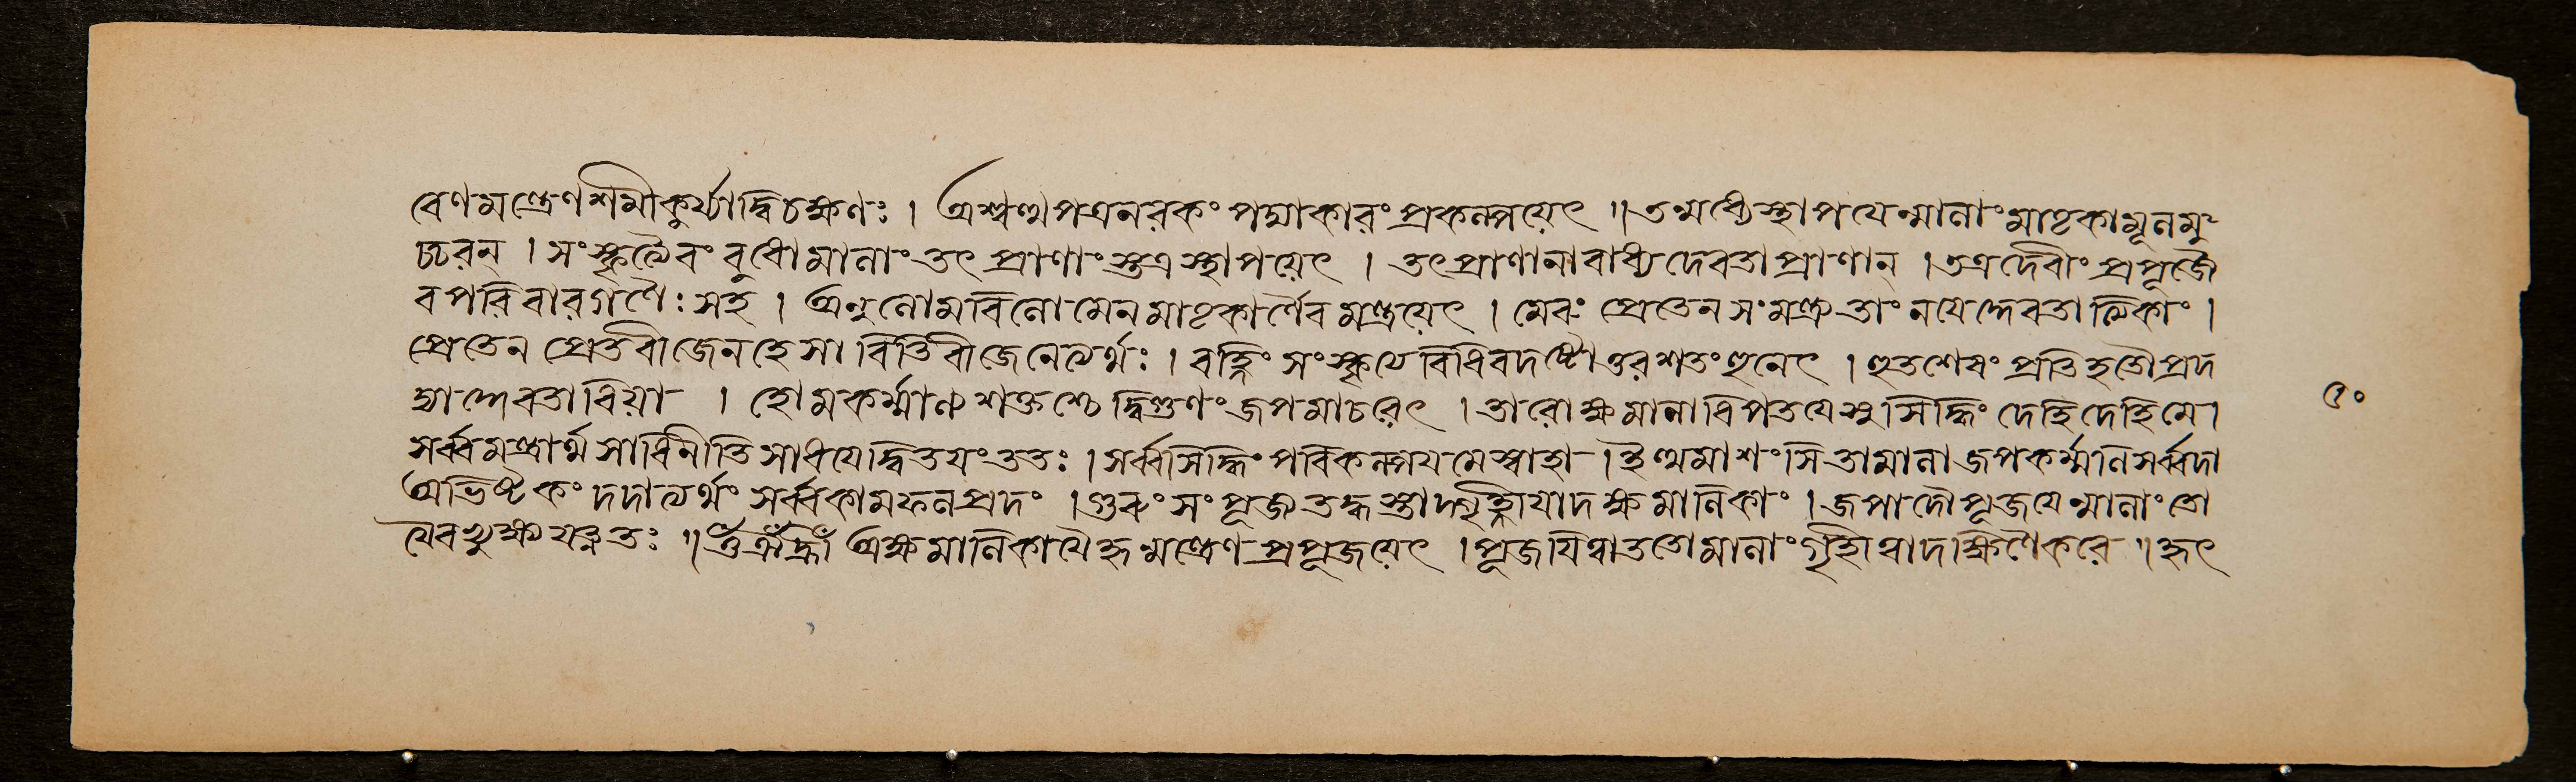 বেণ মন্ত্রেণ শমীকুর্য্যাদ্বিচক্ষণঃ । অশ্বত্থপত্রনরকং পদ্মাকারং প্রকল্পয়েৎ ॥ তন্মধ্যে স্থাপযেন্মালাং মাতৃকামূলমু
চ্চরন্ । সংস্কৃত্যৈবং বুধো মালাং তৎ প্রাণাং স্তত্র স্থাপয়েৎ । তৎপ্রাণানাবাধ্য দেবতাপ্রাণান্ । তত্র দেবীং প্রপূজৈ
ব পরিবারগণৈঃ সহ । অনুলোমবিলোমেন মাতৃকার্ণৈব মন্ত্রয়েৎ । মেরুং প্রেতেন সংমন্ত্র্য তাং নযেদ্দেবতাত্মিকাং ।
প্রেতেন প্রেতবীজেন হেসা বিত্তিবীজেনেত্যর্থঃ । বহ্নিং সংস্কৃত্যে বিধিবদষ্টোত্তরশতং হুনেৎ । হুতশেষং প্রতিহুতৌ প্রদ
দ্যাদ্দেবতাধিয়া । হোমকর্ম্মাণ্যশক্তশ্চে দ্বিগুণং জপমাচরেৎ । তারোক্ষমালাধিপতযে সুসিদ্ধিং দেহি দেহি মে ।
সর্ব্বমন্ত্রার্থসাধিনীতি সাধযেদ্বিতয়ং ততঃ । সর্ব্বসিদ্ধিং পরিকল্পয মে স্বাহা । ইত্থমাশংসিতা মালা জপকর্ম্মনি সর্ব্বদা
অভিষ্টকং দদাত্যর্থং সর্ব্বকামফলপ্রদং । গুরুং সংপূজ্য তদ্ধস্তাদ্গৃহ্নিযাদক্ষমালিকাং । জপাদৌ পূজযেন্মালাং তো
যৈরভ্যুক্ষ্য যত্নতঃ ॥ ওঁ ঐঁ হ্রীঁ অক্ষমালিকাযৈ হৃন্মন্ত্রেণ প্রপূজয়েৎ । পূজযিত্বা ততো মালাং গৃহীত্বা দক্ষিণৈকরে ॥ হৃৎ
৫০